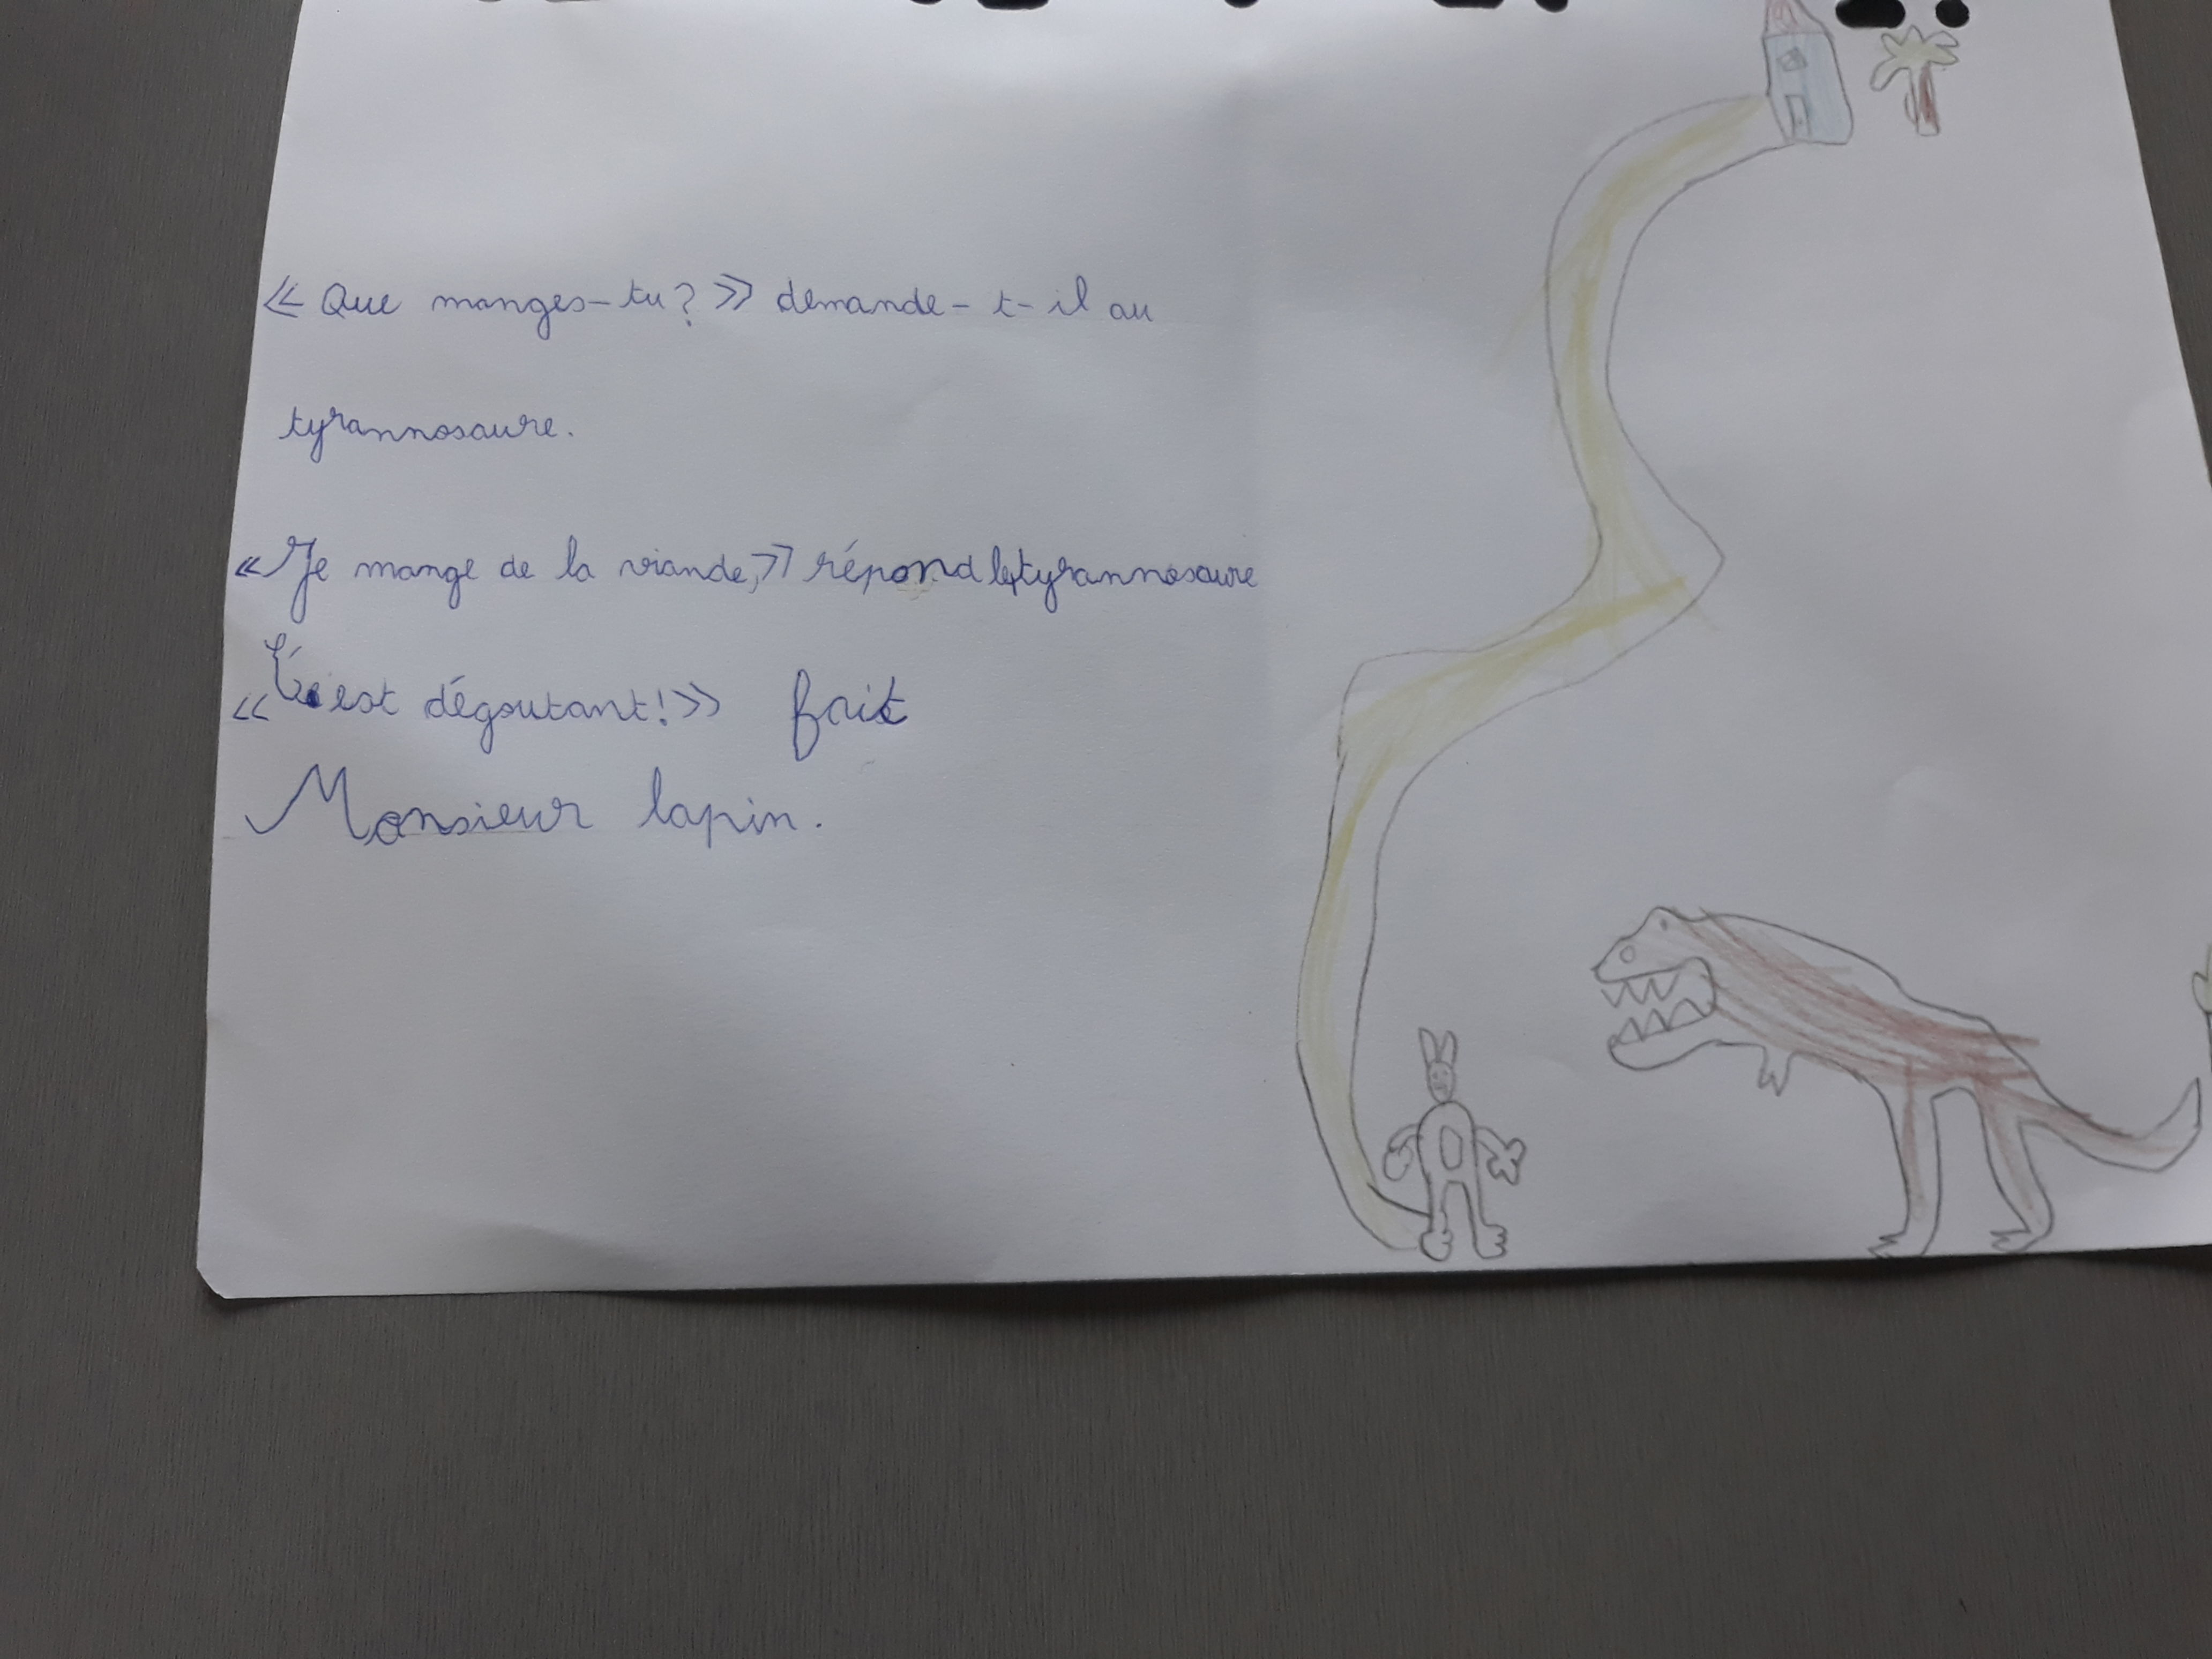 « Que manges-tu ? » demande-t-il au
tyrannosaure.
« Je mange de la viande, » répond le tyrannosaure
« C'est dégoutant ! » fait
Monsieur lapin.